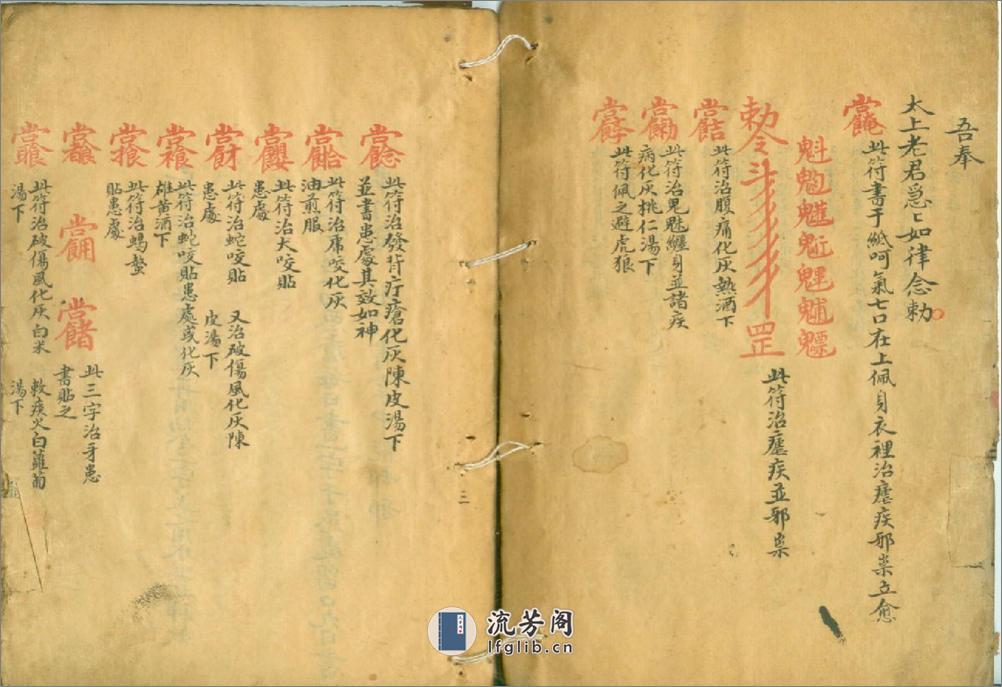 吾奉
太上老君急々如律念勅
此符書于紙呵氣七口在上佩身衣裡治瘧疾邪祟立愈
魁魓
勅令
罡
此符治瘧疾並邪祟
此符治腹痛化灰熱酒下
此符治鬼魅纏身並諸疾
病化灰桃仁湯下
此符佩之避虎狼
此符治發背疔瘡化灰陳皮湯下
並書患處其效如神
此符治虎咬化灰
油煎服
此符治犬咬貼
患處
此符治蛇咬貼
患處
又治破傷風化灰陳
皮湯下
此符治蛇咬貼患處或化灰
雄黃酒下
此符治蝎螫
貼患處
此三字治牙患
書貼之
此符治破傷風化灰白米
湯下
救痰火白蘿蔔
湯下
三
流芳阁
lfglib.cn